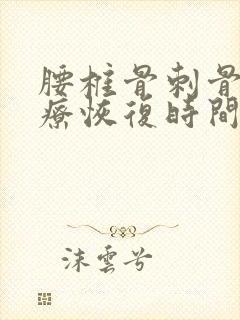 腰椎骨刺骨
療恢復時間
沫雲兮